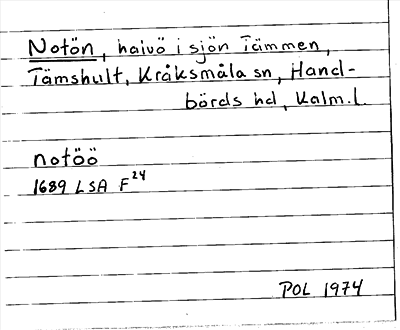 Notön, halvö i sjön Tämmen,
Tämshult, Kråksmåla sn, Hand-
börds hd, Kalm. l.
notöö
1689 LSA F24
POL 1974